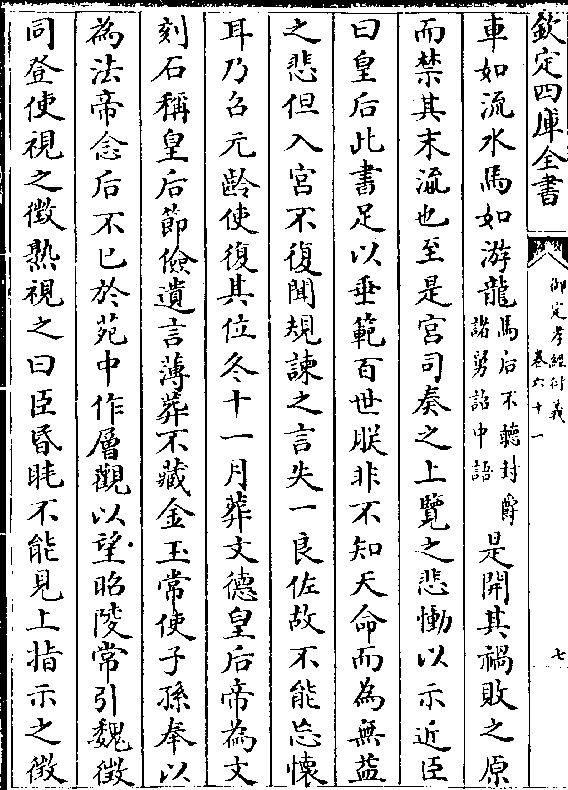 欽定四庫全書
御定孝經衍義
卷六十一
七
車如流水馬如游龍馬后不聽封爵諸舅詔中語是開其禍敗之原
而禁其末流也至是宮司奏之上覽之悲慟以示近臣
曰皇后此書足以垂範百世朕非不知天命而為無益
之悲但入宮不復聞規諫之言失一良佐故不能忘懷
耳乃召元齡使復其位冬十一月葬文德皇后帝為文
刻石稱皇后節儉遺言薄葬不藏金玉常使子孫奉以
為法帝念后不已於苑中作層觀以望昭陵常引魏徵
同登使視之徵熟視之曰臣昏眊不能見上指示之徵